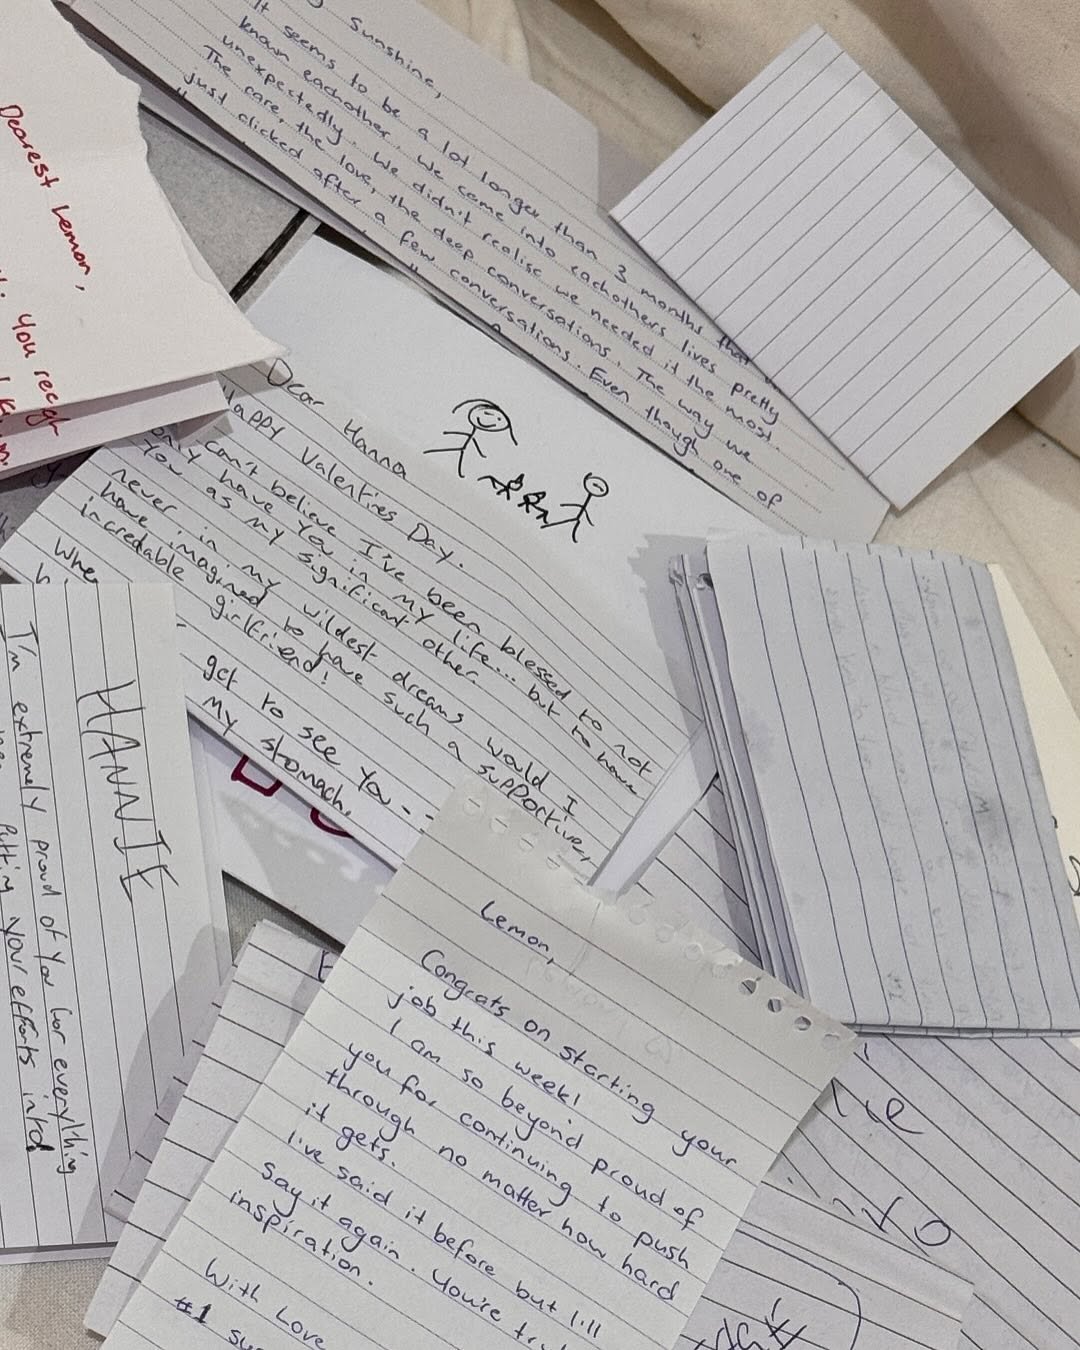 Sunshine,
It seems to be a lot longer than 3 months that
known eachother. We came into eachothers lives pretty
unexpectedly. We didn't realise we needed it the most.
The care, the love, the deep conversations. The way we
just clicked after a few conversations. Even though one of
Dearest Lemon,
you
Dear Hanna
Happy Valentines Day.
can't believe I've been blessed to not
only have you in my life... but to have
you as my significant other.
never in my wildest dreams would I
have imagined to have such a supportive,
incredable girlfriend!
Whe
get to see you - -
my stomach.
HANNIE
I'm extremely proud of you for everything
putting your efforts into
Lemon,
Congrats on starting your
job this week!
I am so beyond proud of
you for continuing to push
through no matter how hard
it gets.
I've said it before but I'll
say it again. You're tr
inspiration.
With Love
#1 su